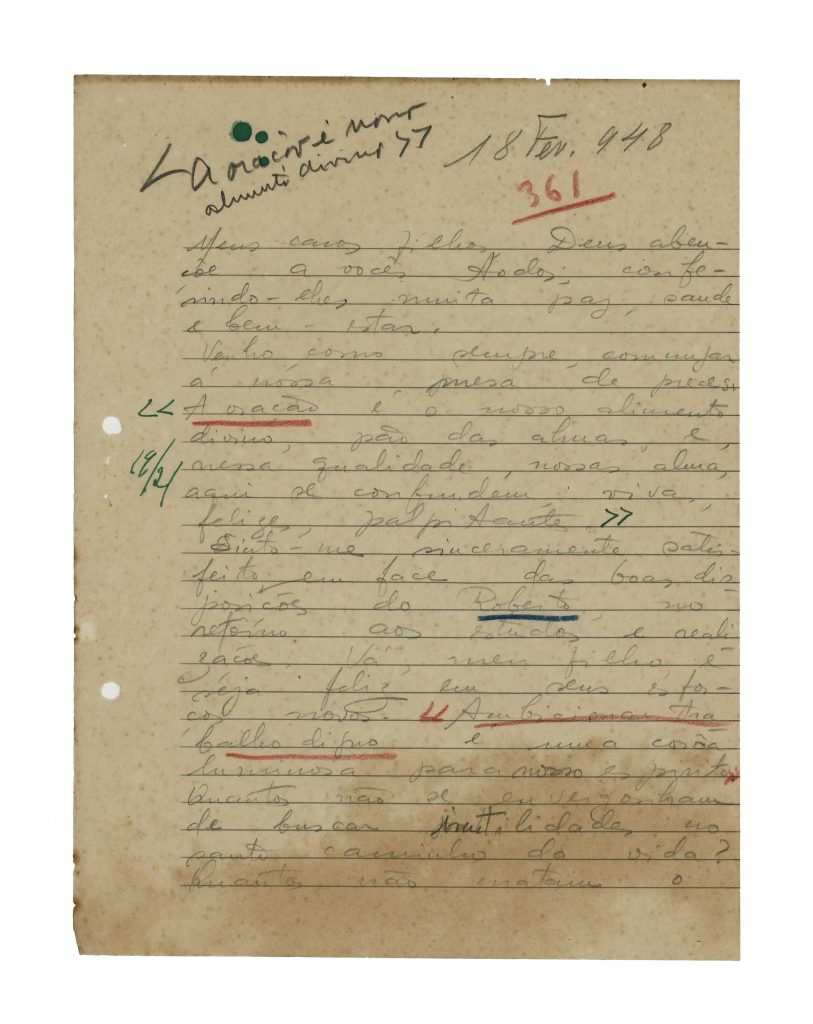 <A oração é nosso
alimento divino >>
18 Fev. 948
361
Meus caros filhos, Deus aben-
çõe a vocês todos, confe-
rindo-lhes muita paz, saude
e bem-estar.
Venho, como sempre, comungar
á nóssa mesa de preces.
<< A oração é o nosso alimento
divino, pão das almas, e,
19/2/
nessa qualidade, nossas almas
aqui se confundem, vivas,
felizes, palpitantes >>
Sinto-me sinceramente satis-
feito, em face das boas dis
posições do Roberto, no
retôrno aos estudos e reali
zações. Vá, meu filho, e
seja feliz em seus esfor-
ços novos. << Ambicionar tra
balho digno é uma corôa
luminosa para nosso espirito>>
Quantos não se envergonham
de buscar inutilidades no
santo caminho da vida?
Quantos não matam o